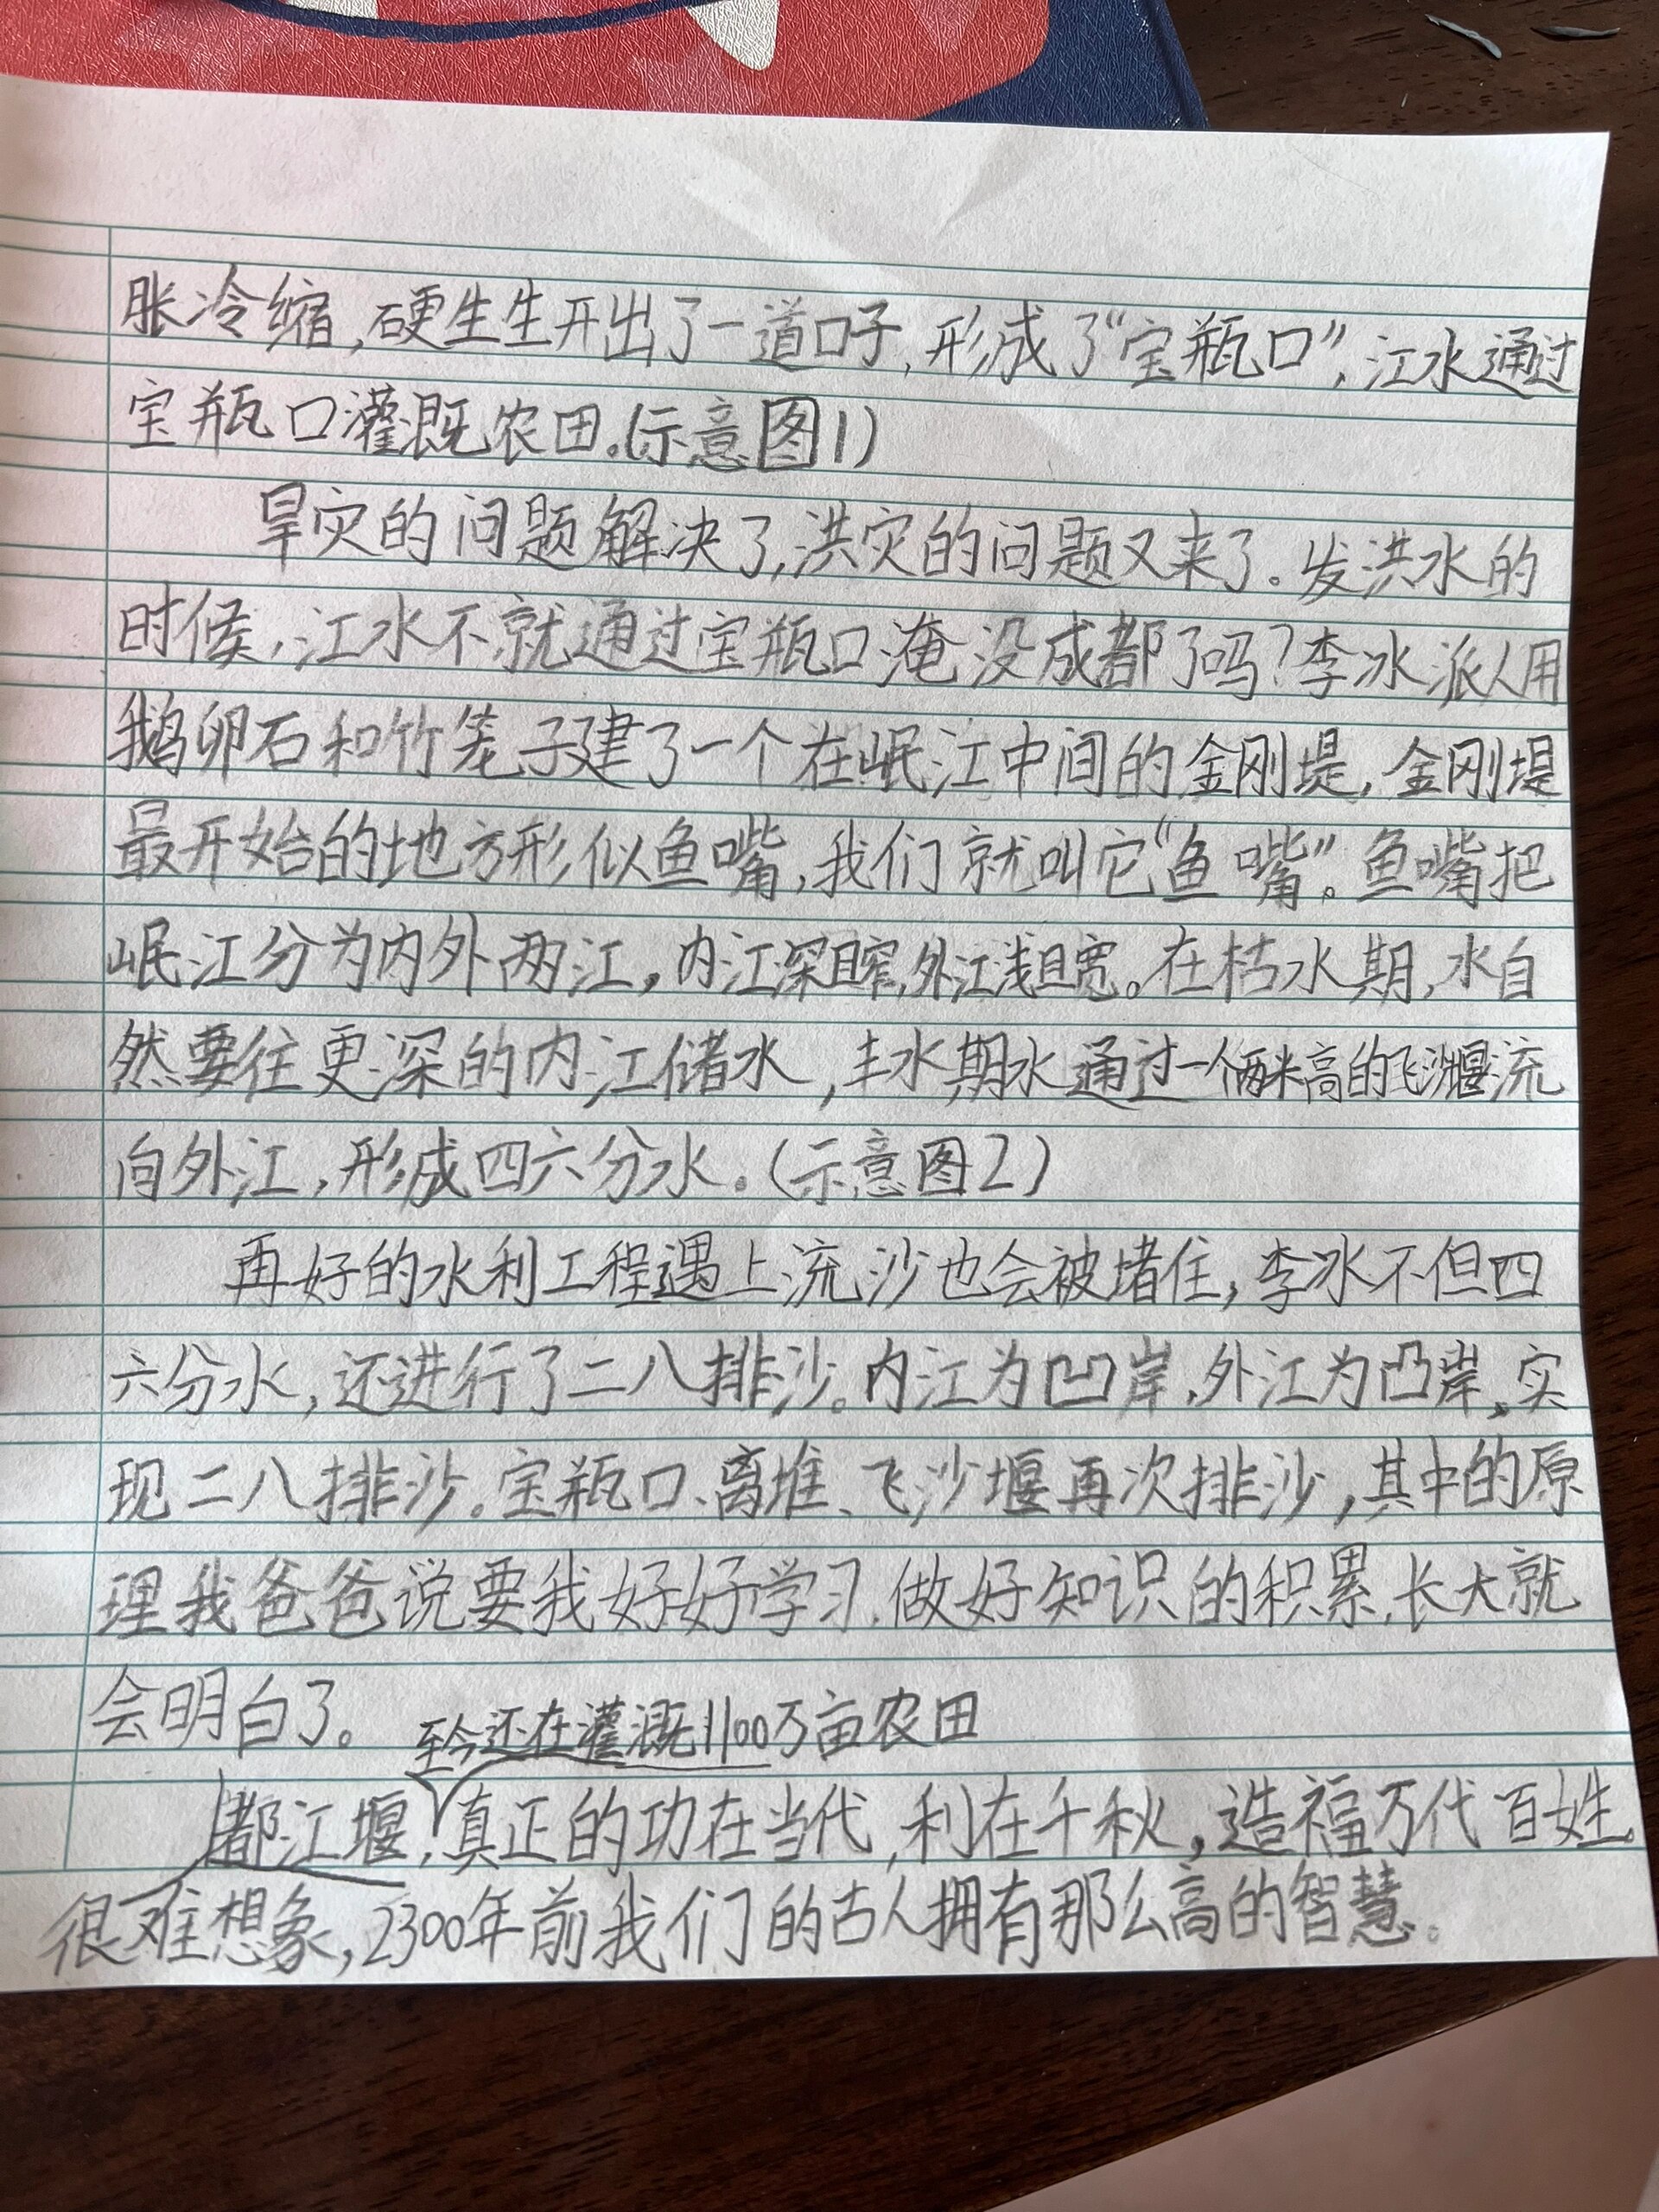 胀冷缩,硬生生开出了一道口子,形成了“宝瓶口”,江水通过
宝瓶口灌溉农田。(示意图1)
旱灾的问题解决了,洪灾的问题又来了。发洪水的
时候,江水不就通过宝瓶口淹没成都了吗?李冰派人用
鹅卵石和竹笼子建了一个在岷江中间的金刚堤,金刚堤
最开始的地方形似鱼嘴,我们就叫它“鱼嘴”。鱼嘴把
岷江分为内外两江,内江深且窄,外江浅且宽。在枯水期,水自
然要往更深的内江储水,丰水期水通过一个两米高的飞沙堰流
向外江,形成四六分水。(示意图2)
再好的水利工程遇上流沙也会被堵住,李冰不但四
六分水,还进行了二八排沙。内江为凹岸,外江为凸岸,实
现二八排沙。宝瓶口、离堆、飞沙堰再次排沙,其中的原
理我爸爸说要我好好学习,做好知识的积累,长大就
会明白了。
至今还在灌溉1100万亩农田
都江堰,真正的功在当代,利在千秋,造福万代百姓。
很难想象,2300年前我们的古人拥有那么高的智慧。